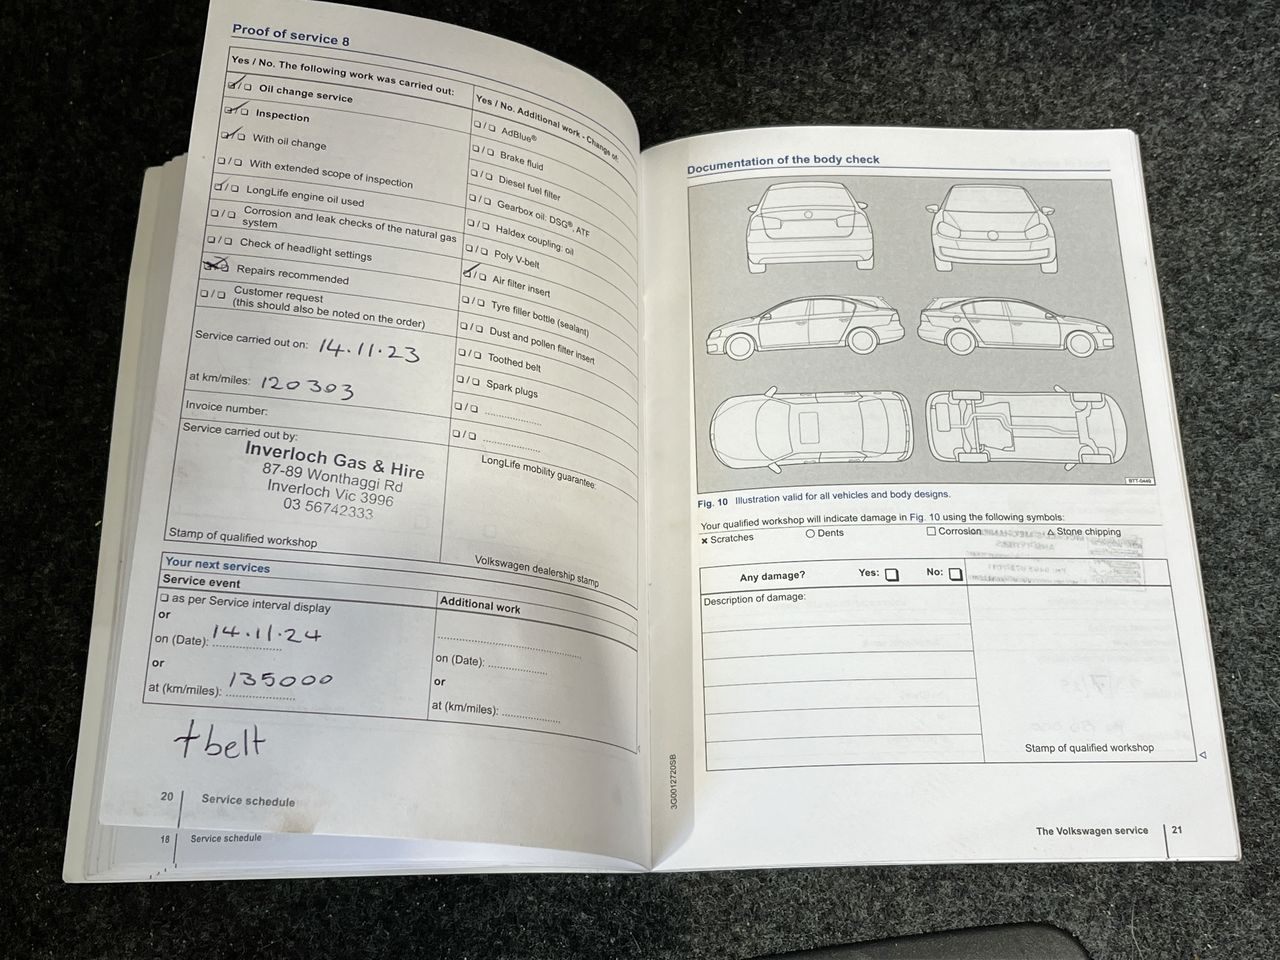 Proof of service 8
Yes / No. The following work was carried out:
☑/☐ Oil change service
☑/☐ Inspection
☑/☐ With oil change
☐/☐ With extended scope of inspection
☑/☐ LongLife engine oil used
☐/☐ Corrosion and leak checks of the natural gas
system
☐/☐ Check of headlight settings
Repairs recommended
☐/☐ Customer request
(this should also be noted on the order)
Service carried out on: 14.11.23
at km/miles: 120303
Invoice number:
Service carried out by:
Inverloch Gas & Hire
87-89 Wonthaggi Rd
Inverloch Vic 3996
03 56742333
Stamp of qualified workshop
Yes / No. Additional work - Change of:
☐/☐ AdBlue®
☐/☐ Brake fluid
☐/☐ Diesel fuel filter
☐/☐ Gearbox oil: DSG®, ATF
☐/☐ Haldex coupling: oil
☐/☐ Poly V-belt
☑/☐ Air filter insert
☐/☐ Tyre filler bottle (sealant)
☐/☐ Dust and pollen filter insert
☐/☐ Toothed belt
☐/☐ Spark plugs
☐/☐ ....................
☐/☐ ....................
LongLife mobility guarantee:
Volkswagen dealership stamp
Your next services
Service event
☐ as per Service interval display
or
on (Date): 14.11.24
or
at (km/miles): 135000
Additional work
on (Date): ....................
or
at (km/miles): ....................
+belt
20 | Service schedule
18 | Service schedule
Documentation of the body check
BTT-0449
Fig. 10 Illustration valid for all vehicles and body designs.
Your qualified workshop will indicate damage in Fig. 10 using the following symbols:
× Scratches ○ Dents □ Corrosion △ Stone chipping
Any damage? Yes: ☐ No: ☐
Description of damage:
Stamp of qualified workshop
3G0012720SB
The Volkswagen service | 21